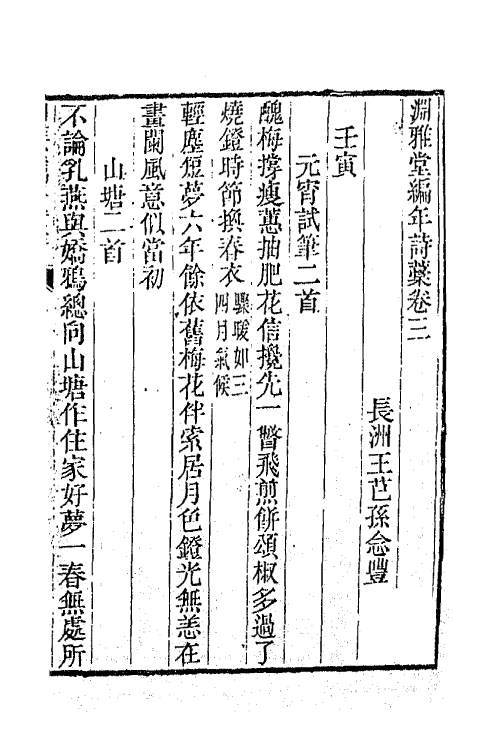 淵雅堂編年詩藁卷三
長洲王芑孫念豐
壬寅
元宵試筆二首
醜梅撐瘦蕙抽肥花信攙先一瞥飛煎餅頌椒多過了
燒鐙時節換春衣驟暖如三四月氣候
輕塵短夢六年餘依舊梅花伴索居月色鐙光無恙在
畫闌風意似當初
山塘二首
不論乳燕與嬌鴉總向山塘作住家好夢一春無處所